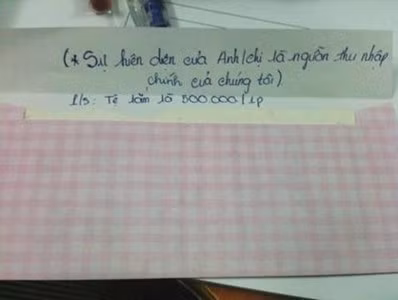 (* Sự hiện diện của Anh/chị là nguồn thu nhập
chính của chúng tôi)
t/s: Tệ lắm là 500 000 / 1p